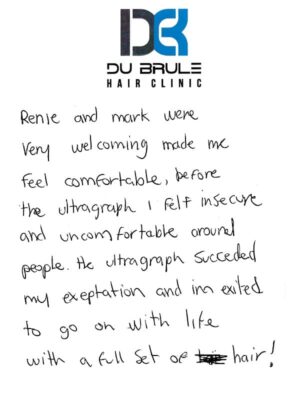 DU BRULE
HAIR CLINIC
Renie and mark were
Very welcoming made me
feel comfortable, before
the ultragraph I felt insecure
and uncomfortable around
people. the ultragraph Succeded
my exeptation and im exited
to go on with life
with a full set of hair!